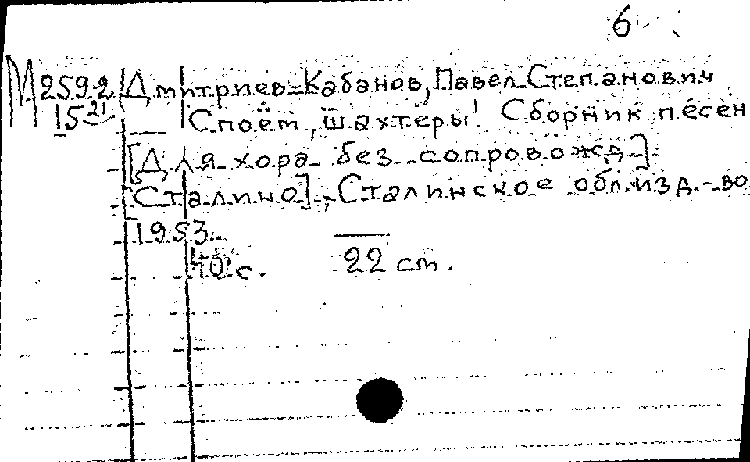 6
М 259-2 Дмитриев-Кабанов, Павел Степанович
15 21 Споём, шахтёры! Сборник песен
[Для хора без сопровожд.]
[Сталино], Сталинское обл. изд-во
1953
40 с. 22 cm.